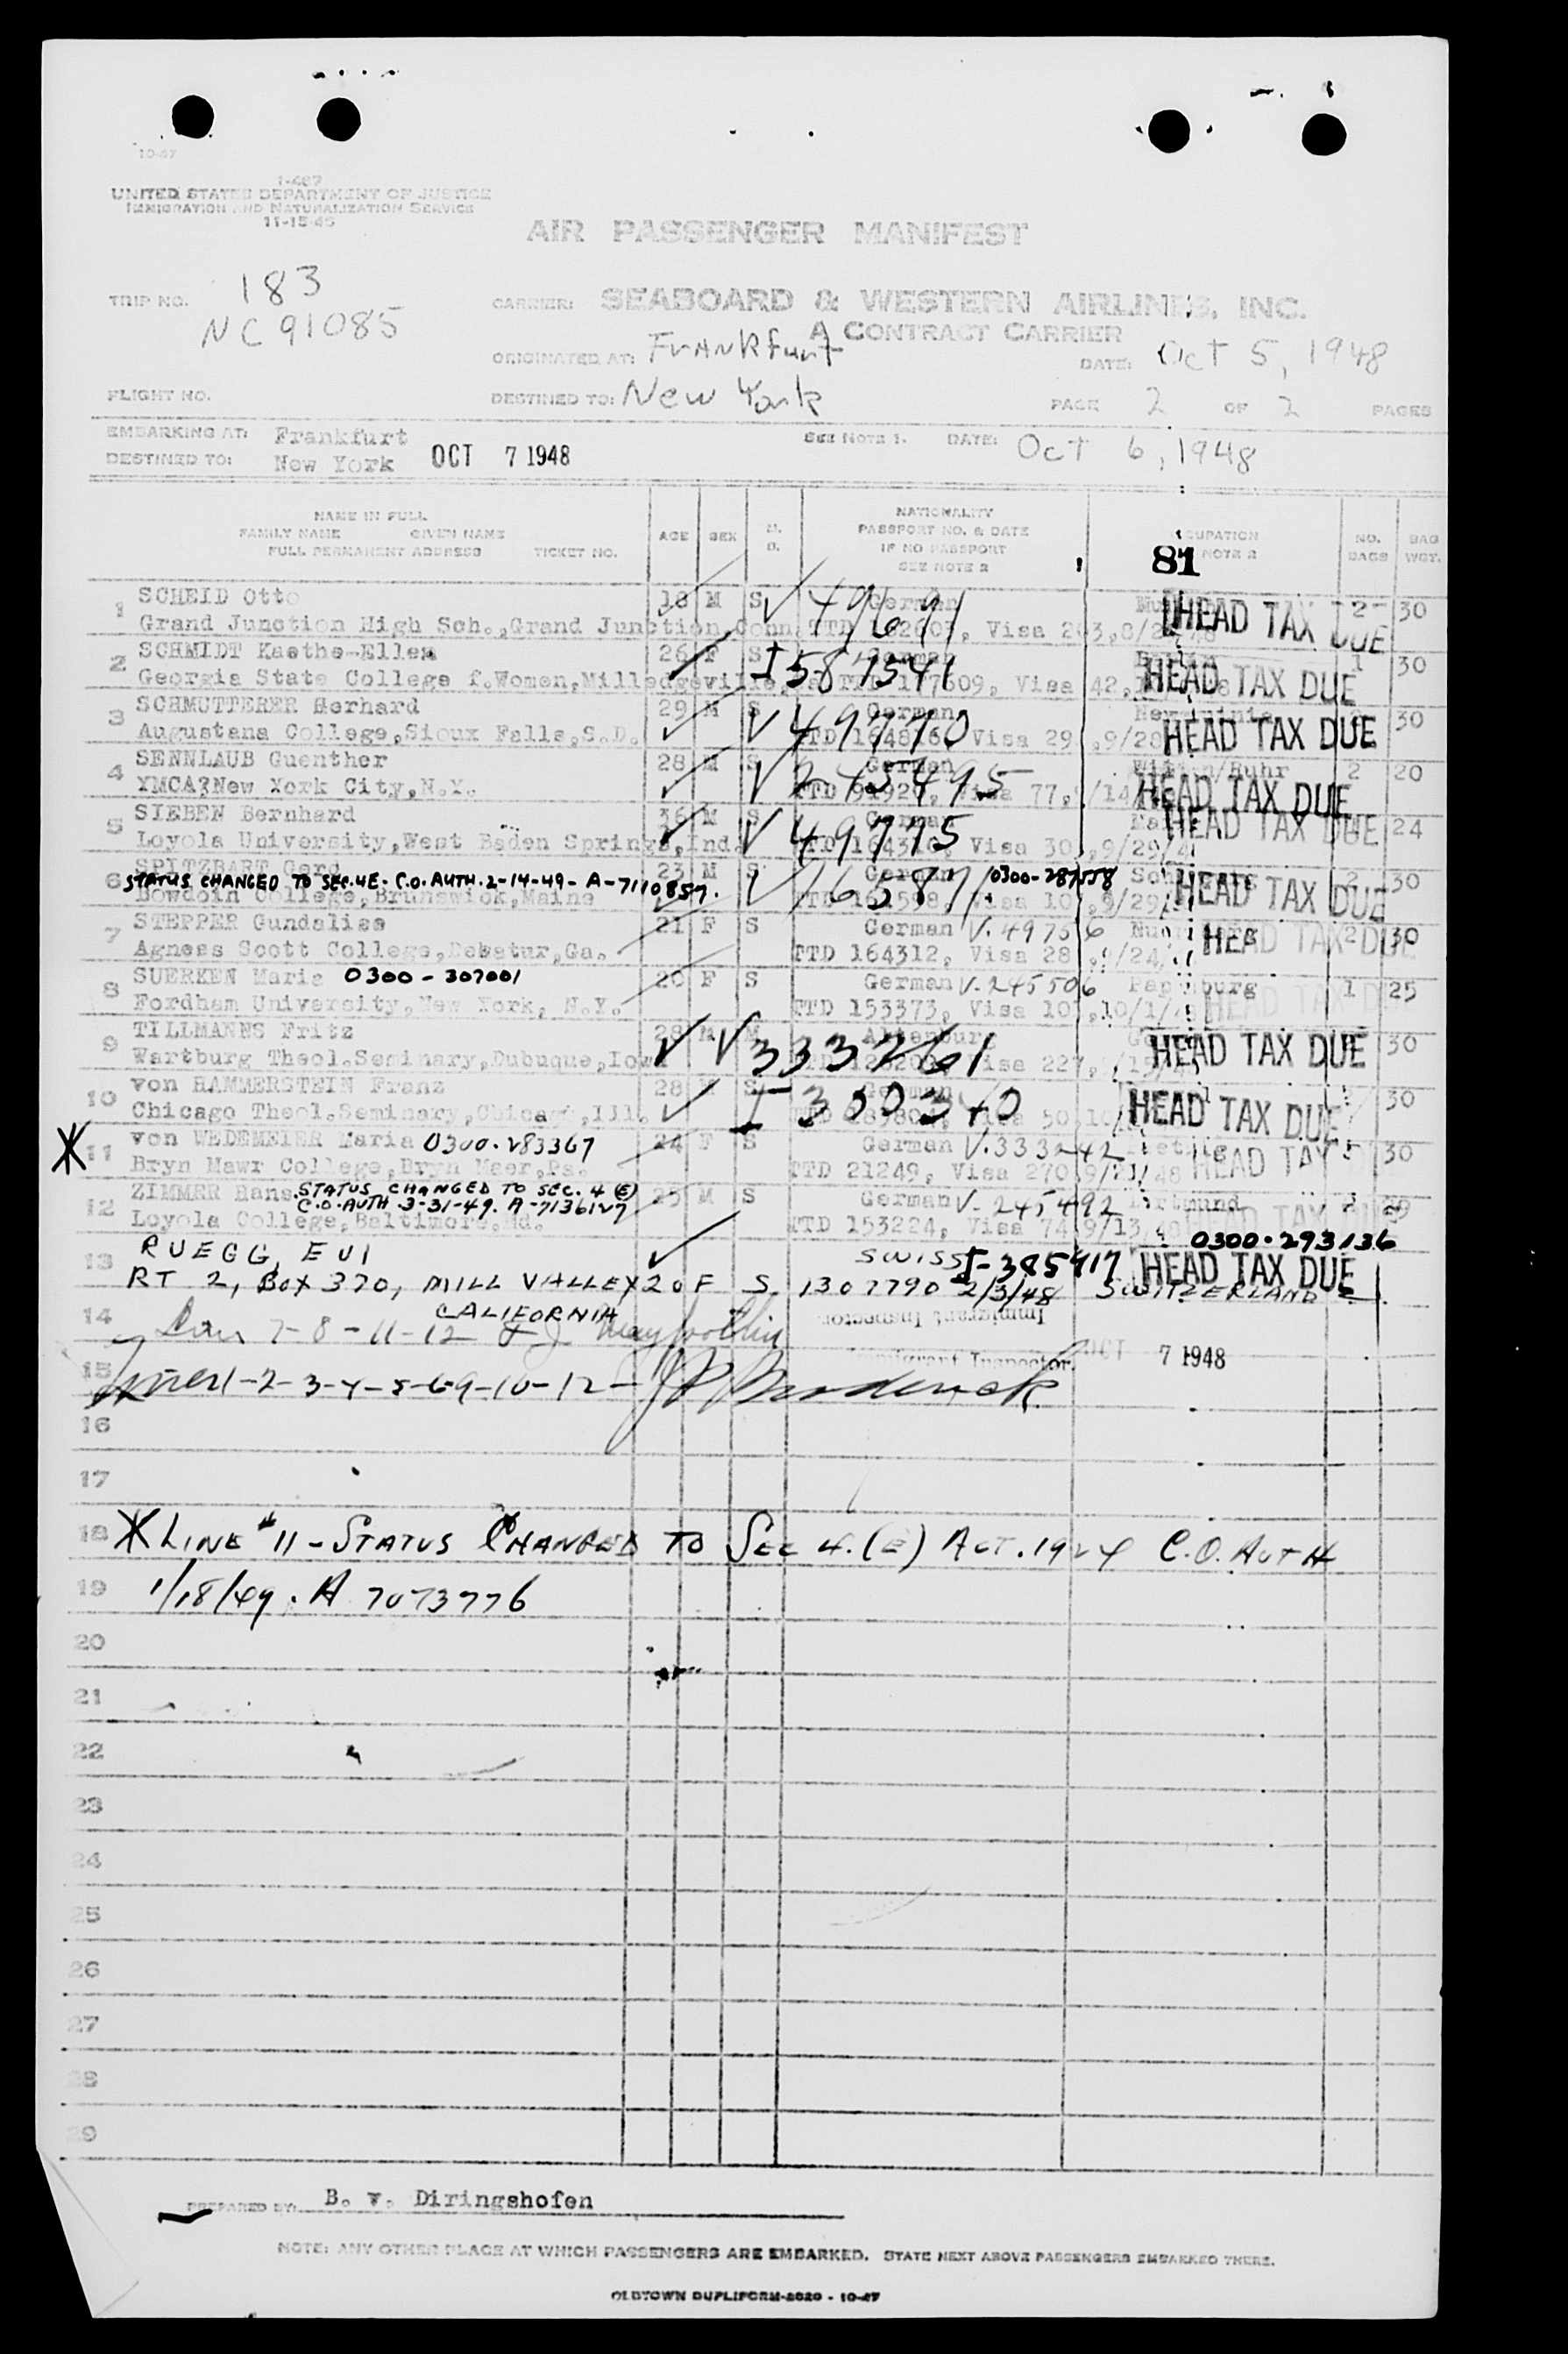 10-47
I-467
UNITED STATES DEPARTMENT OF JUSTICE
IMMIGRATION AND NATURALIZATION SERVICE
11-15-45
AIR PASSENGER MANIFEST
TRIP NO. 183
NC 91085
CARRIER: SEABOARD & WESTERN AIRLINES, INC.
A CONTRACT CARRIER
ORIGINATED AT: FRANKfurt DATE: Oct 5, 1948
FLIGHT NO. DESTINED TO: New York PAGE 2 OF 2 PAGES
EMBARKING AT: Frankfurt SEE NOTE 1. DATE: Oct 6, 1948
DESTINED TO: New York OCT 7 1948
NAME IN FULL
FAMILY NAME GIVEN NAME
FULL PERMANENT ADDRESS TICKET NO.
AGE SEX M. S.
NATIONALITY
PASSPORT NO. & DATE
IF NO PASSPORT
SEE NOTE 2
CUPATION
NOTE 2
NO. BAGS
BAG WGT.
81
1 SCHEID Otto 18 M S German 49691 HEAD TAX DUE 2 30
Grand Junction High Sch.,Grand Junction,Conn. TTD Visa
2 SCHMIDT Kaethe-Ellen 26 F S I 587541 HEAD TAX DUE 1 30
Georgia State College f.Women,Milledgeville, Visa 42,
3 SCHMUTTERER Gerhard 29 M S German 497770 HEAD TAX DUE 30
Augustana College,Sioux Falls,S.D. TTD Visa 29 ,9/28
4 SENNLAUB Guenther 28 M S German 245495 Witten/Ruhr HEAD TAX DUE 2 20
YMCA,New York City,N.Y. TTD Visa 77,
5 SIEBEN Bernhard 36 M S German 49775 HEAD TAX DUE 24
Loyola University,West Baden Springs,Ind. TTD Visa 30 ,9/29/4
6 SPITZBART Gerd 23 M S German 0300-287558 HEAD TAX DUE 2 30
STATUS CHANGED TO SEC.4E- C.O. AUTH. 2-14-49- A-7110857.
Bowdoin College,Brunswick,Maine TTD Visa 10 ,9/29
7 STEPPER Gundalise 21 F S German V. 49756 HEAD TAX DUE 2 30
Agness Scott College,Decatur,Ga. TTD 164312, Visa 28 ,9/24/
8 SUERKEN Maria 0300 - 307001 20 F S German V. 245506 Papenburg HEAD TAX DUE 1 25
Fordham University,New York, N.Y. TTD 153373, Visa 10 ,10/1/48
9 TILLMANNS Fritz 28 M M 333261 HEAD TAX DUE 30
Wartburg Theol.Seminary,Dubuque,Iowa Visa 227,
10 von HAMMERSTEIN Franz 28 M S German I 300340 HEAD TAX DUE 30
Chicago Theol.Seminary,Chicago,Ill. Visa 50,
11 von WEDEMEIER Maria 0300-283367 24 F S German V.333242 HEAD TAX D 30
Bryn Mawr College,Bryn Mawr,Pa. TTD 21249, Visa 270,9/23/48
12 ZIMMER Hans STATUS CHANGED TO SEC. 4 (E) 25 M S German V- 245492 Dortmund HEAD TAX DUE 2 29
C.O. AUTH. 3-31-49. A-7136127
Loyola College,Baltimore,Md. TTD 153224, Visa 74,9/13,48 0300-293136
13 RUEGG, EVI SWISS I-385417 HEAD TAX DUE
RT 2, Box 370, MILL VALLEY 20 F S 1307790 2/3/48 SWITZERLAND 2
CALIFORNIA
14 7-8-11-12
Immigrant Inspector
15 Lines 1-2-3-4-5-6-9-10-12- J P Broderick Immigrant Inspector OCT 7 1948
16
17
18 * LINE #11 - STATUS CHANGED TO SEC 4.(E) ACT. 1924 C.O. AUTH
19 1/18/49. A 7073776
20
21
22
23
24
25
26
27
28
29
PREPARED BY: B. v. Diringshofen
NOTE: ANY OTHER PLACE AT WHICH PASSENGERS ARE EMBARKED. STATE NEXT ABOVE PASSENGERS EMBARKED THERE.
OLDTOWN DUPLIFORM-2020 - 10-47